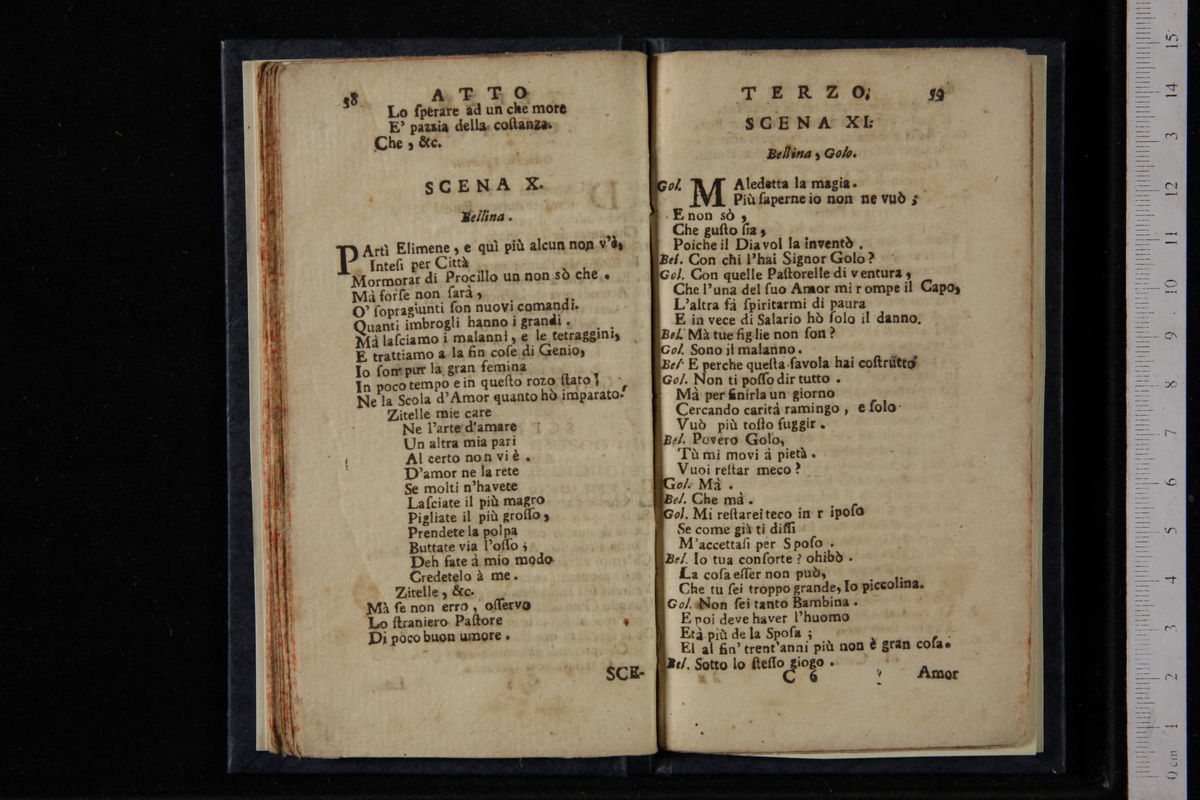 58 ATTO
Lo ſperare ad un che more
E' pazzia della coſtanza.
Che, &c.
SCENA X.
Bellina.
PArtì Elimene, e quì più alcun non v'è,
Inteſi per Città
Mormorar di Procillo un non sò che.
Mà forſe non ſarà,
O' ſopragiunti ſon nuovi comandi.
Quanti imbrogli hanno i grandi.
Mà laſciamo i malanni, e le tetraggini,
E trattiamo a la fin coſe di Genio,
Io ſon pur la gran femina
In poco tempo e in queſto rozo ſtato!
Ne la Scola d'Amor quanto hò imparato!
Zitelle mie care
Ne l'arte d'amare
Un altra mia pari
Al certo non vi è.
D'amor ne la rete
Se molti n'havete
Laſciate il più magro
Pigliate il più groſſo,
Prendete la polpa
Buttate via l'oſſo;
Deh fate à mio modo
Credetelo à me.
Zitelle, &c.
Mà ſe non erro, oſſervo
Lo ſtraniero Paſtore
Di poco buon umore.
SCE-
TERZO. 59
SCENA XI.
Bellina, Golo.
Gol. MAledetta la magia.
Più ſaperne io non ne vuò;
E non sò,
Che guſto ſia,
Poiche il Diavol la inventò.
Bel. Con chi l'hai Signor Golo?
Gol. Con quelle Paſtorelle di ventura,
Che l'una del ſuo Amor mi rompe il Capo,
L'altra fà ſpiritarmi di paura
E in vece di Salario hò ſolo il danno.
Bel. Mà tue figlie non ſon?
Gol. Sono il malanno.
Bel. E perche queſta favola hai coſtrutto
Gol. Non ti poſſo dir tutto.
Mà per finirla un giorno
Cercando carità ramingo, e ſolo
Vuò più toſto fuggir.
Bel. Povero Golo,
Tù mi movi à pietà.
Vuoi reſtar meco?
Gol. Mà.
Bel. Che mà.
Gol. Mi reſtarei teco in r ipoſo
Se come già ti diſſi
M'accettaſi per Spoſo.
Bel. Io tua conſorte? ohibò.
La coſa eſſer non può,
Che tu ſei troppo grande, Io piccolina.
Gol. Non ſei tanto Bambina.
E poi deve haver l'huomo
Età più de la Spoſa;
El al fin' trent'anni più non è gran coſa.
Bel. Sotto lo ſteſſo giogo.
C 6 Amor